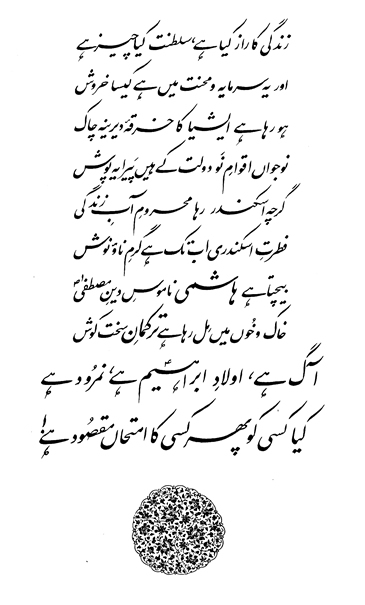 زندگی کا راز کیا ہے، سلطنت کیا چیز ہے
اور یہ سرمایہ و محنت میں ہے کیسا خروش
ہو رہا ہے ایشیا کا خرقۂ دیرینہ چاک
نوجواں اقوامِ نَو دولت کے ہیں پَیرایہ پوش
گرچہ اسکندر رہا محرومِ آبِ زندگی
فطرتِ اسکندری اب تک ہے گرمِ ناؤ نوش
بیچتا ہے ہاشمی ناموسِ دینِ مصطفیٰؐ
خاک و خُوں میں مِل رہا ہے ترکمانِ سخت کوش
آگ ہے، اولادِ ابراہیمؑ ہے، نمرُود ہے
کیا کسی کو پھر کسی کا امتحاں مقصُود ہے!